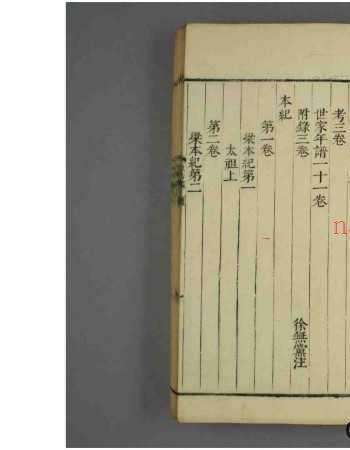 考三卷
世家年譜一十一卷
附錄三卷
徐無黨注
本紀
第一卷
梁本紀第一
太祖上
第二卷
梁本紀第二